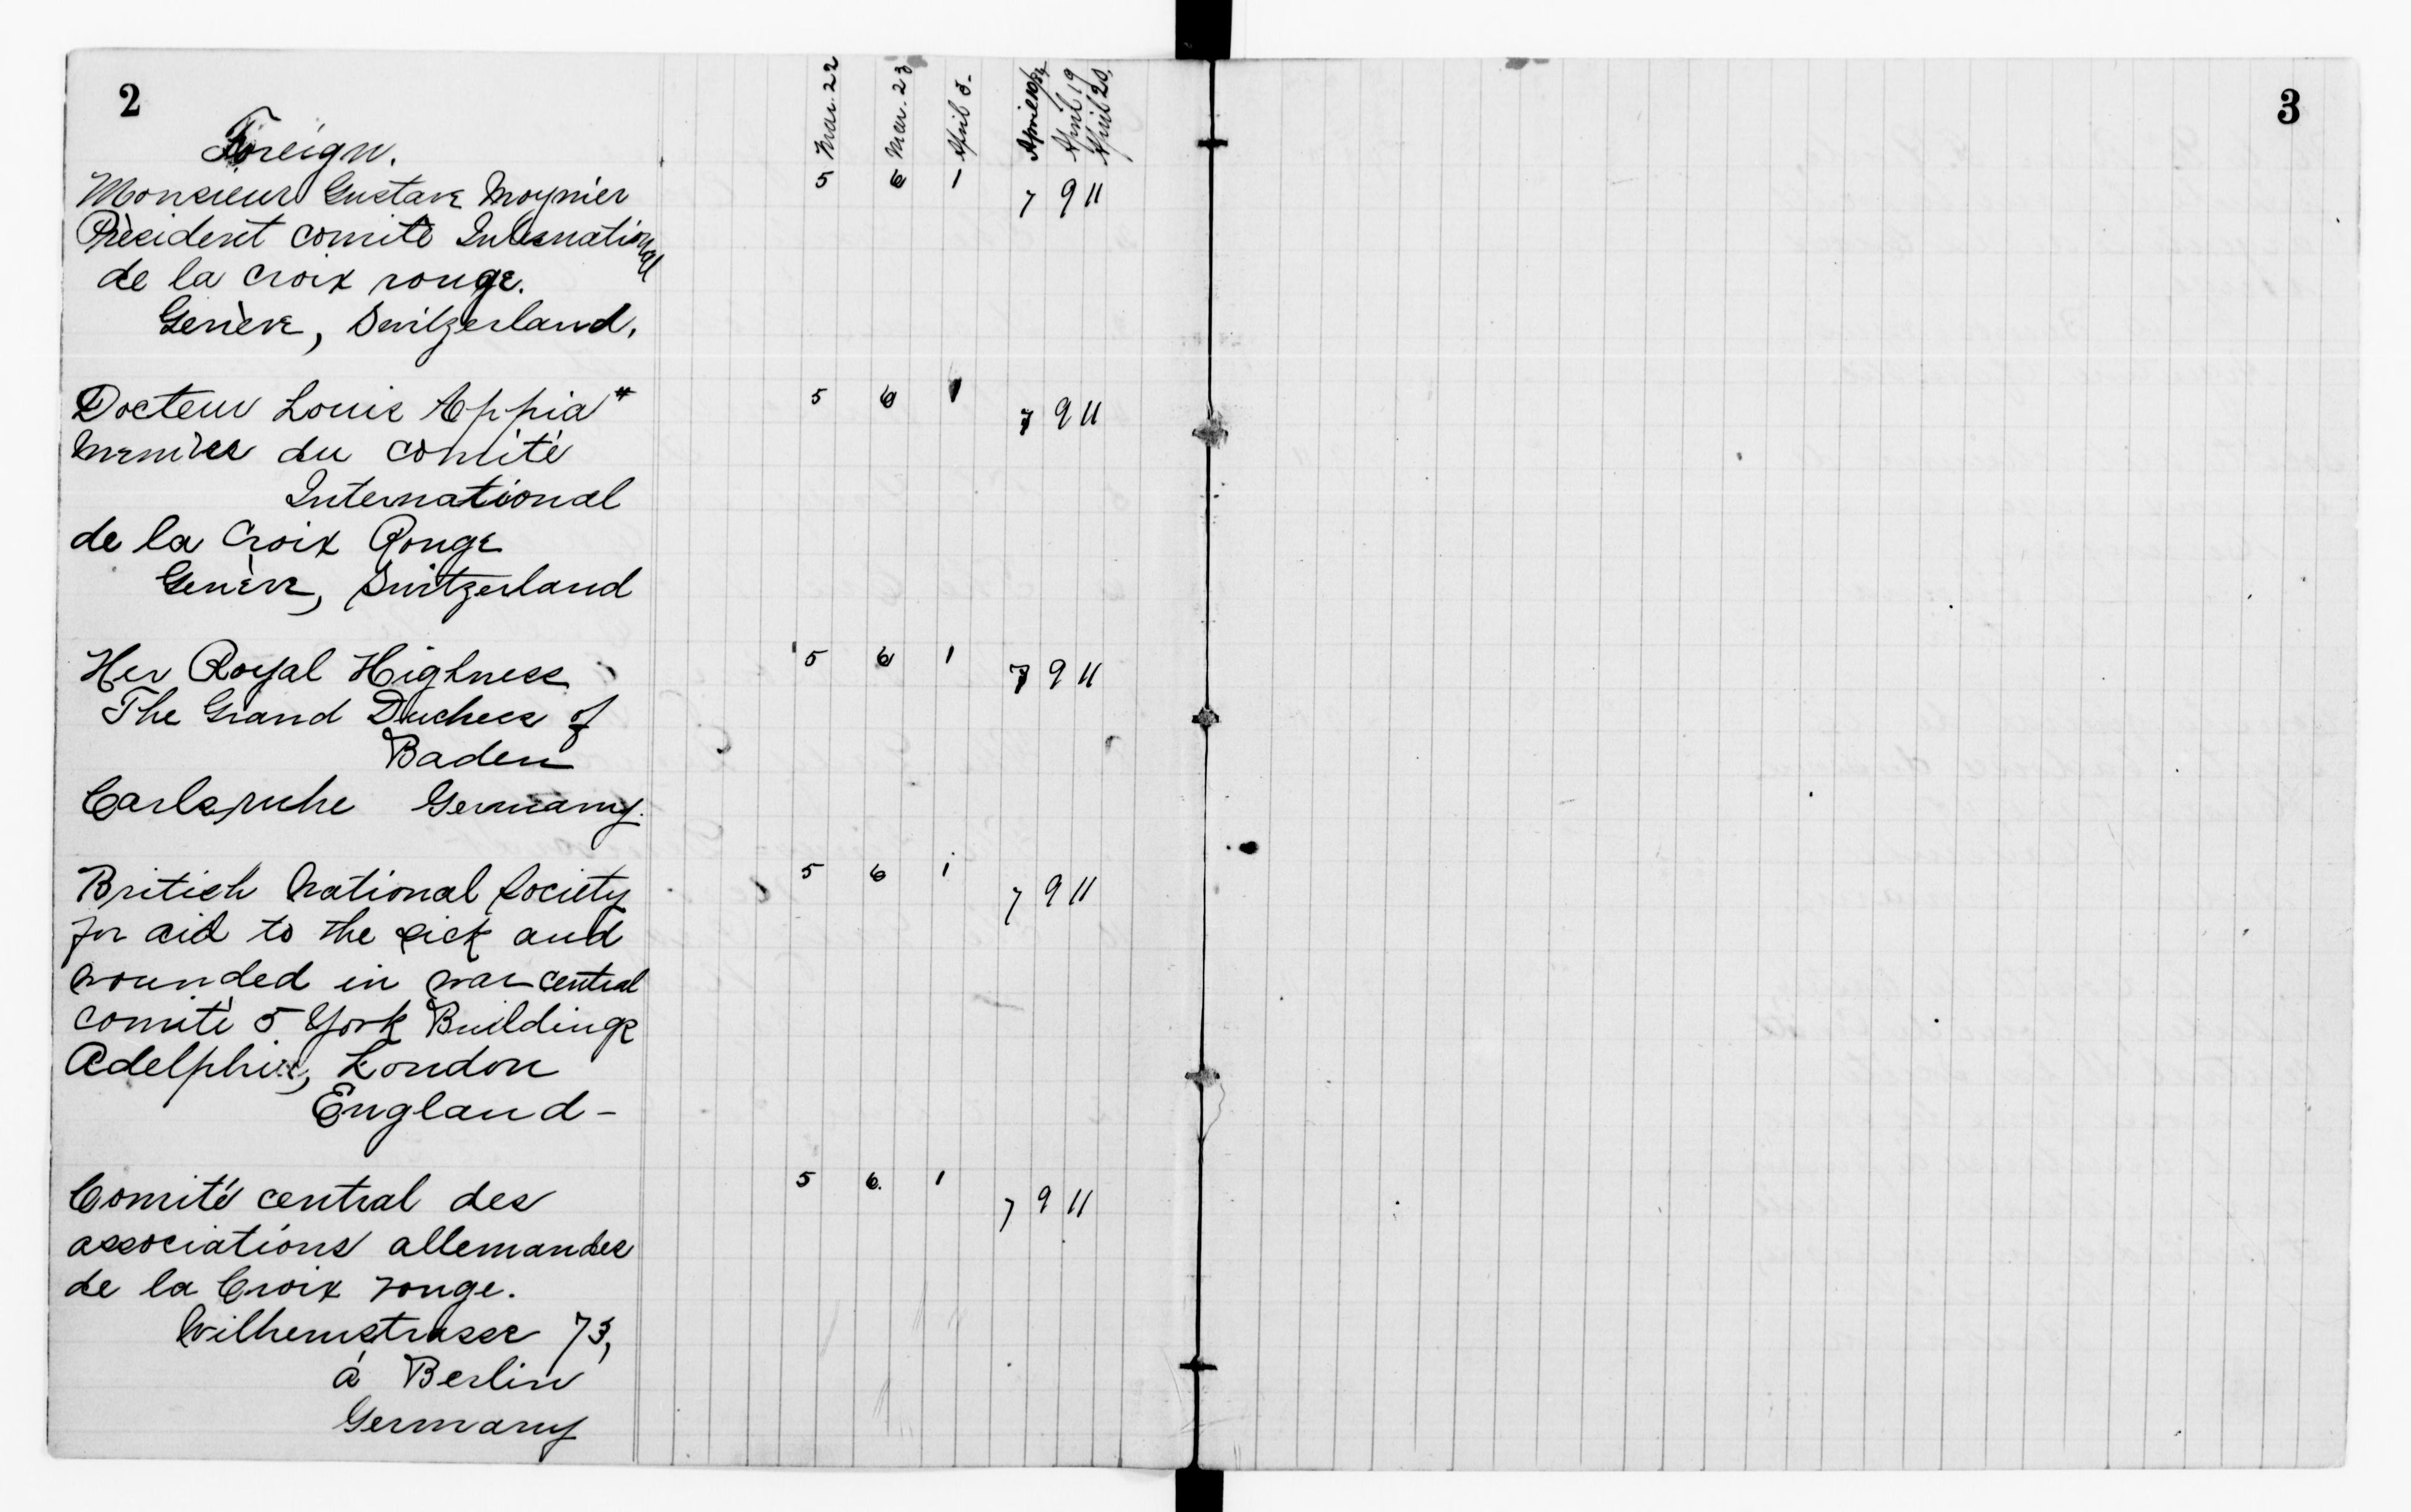 2
3
Mar. 22 Mar. 23 April 5. April 19 April 20.
Foreign.
Monsieur Gustave Moynier 5 6 1 7 9 11
Président comite International
de la croix rouge.
Genève, Switzerland.
Docteur Louis Appia* 5 6 1 7 9 11
du comité
International
de la Croix Rouge
Genève, Switzerland
Her Royal Highness 5 6 1 7 9 11
The Grand Duchess of
Baden
Carlsruhe Germany.
British National Society 5 6 1 7 9 11
for aid to the sick and
wounded in war central
comitè 5 York Buildings
London
England-
Comité central des 5 6. 1 7 9 11
associations allemandes
de la Croix rouge.
Wilhemstrasse 73,
á Berlin
Germany